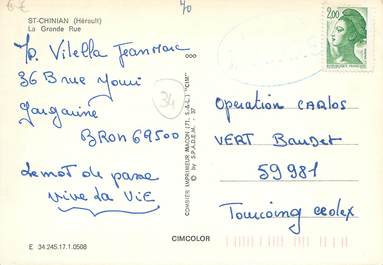 6€
40
ST-CHINIAN (Hérault)
La Grande Rue
Vilella Jean Marc
36 B rue Youri
gagarine
BRON 69500
Le mot de passe
vive la ViE
34
COMBIER IMPRIMEUR MACON (71. S.-&-L.) "CIM"
© by S.P.A.D.E.M. - 37
2,00
Opération CARLOS
VERT Baudet
59981
Tourcoing cedex
CIMCOLOR
E 34.245.17.1.0508